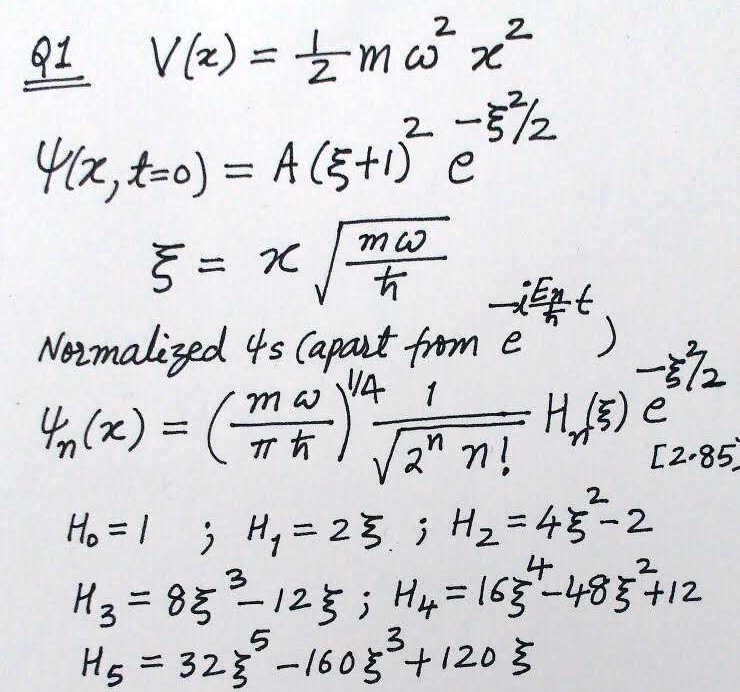 Q1 V(x) = 1/2 m ω² x²
Ψ(x, t=0) = A (ξ+1)² e^(-ξ²/2)
ξ = x √(mω/ħ)
Normalized ψs (apart from e^(-i Eₙ/ħ t))
ψₙ(x) = (mω/πħ)^(1/4) 1/√(2ⁿ n!) Hₙ(ξ) e^(-ξ²/2)
[2.85]
H₀ = 1 ; H₁ = 2ξ ; H₂ = 4ξ² - 2
H₃ = 8ξ³ - 12ξ ; H₄ = 16ξ⁴ - 48ξ² + 12
H₅ = 32ξ⁵ - 160ξ³ + 120ξ